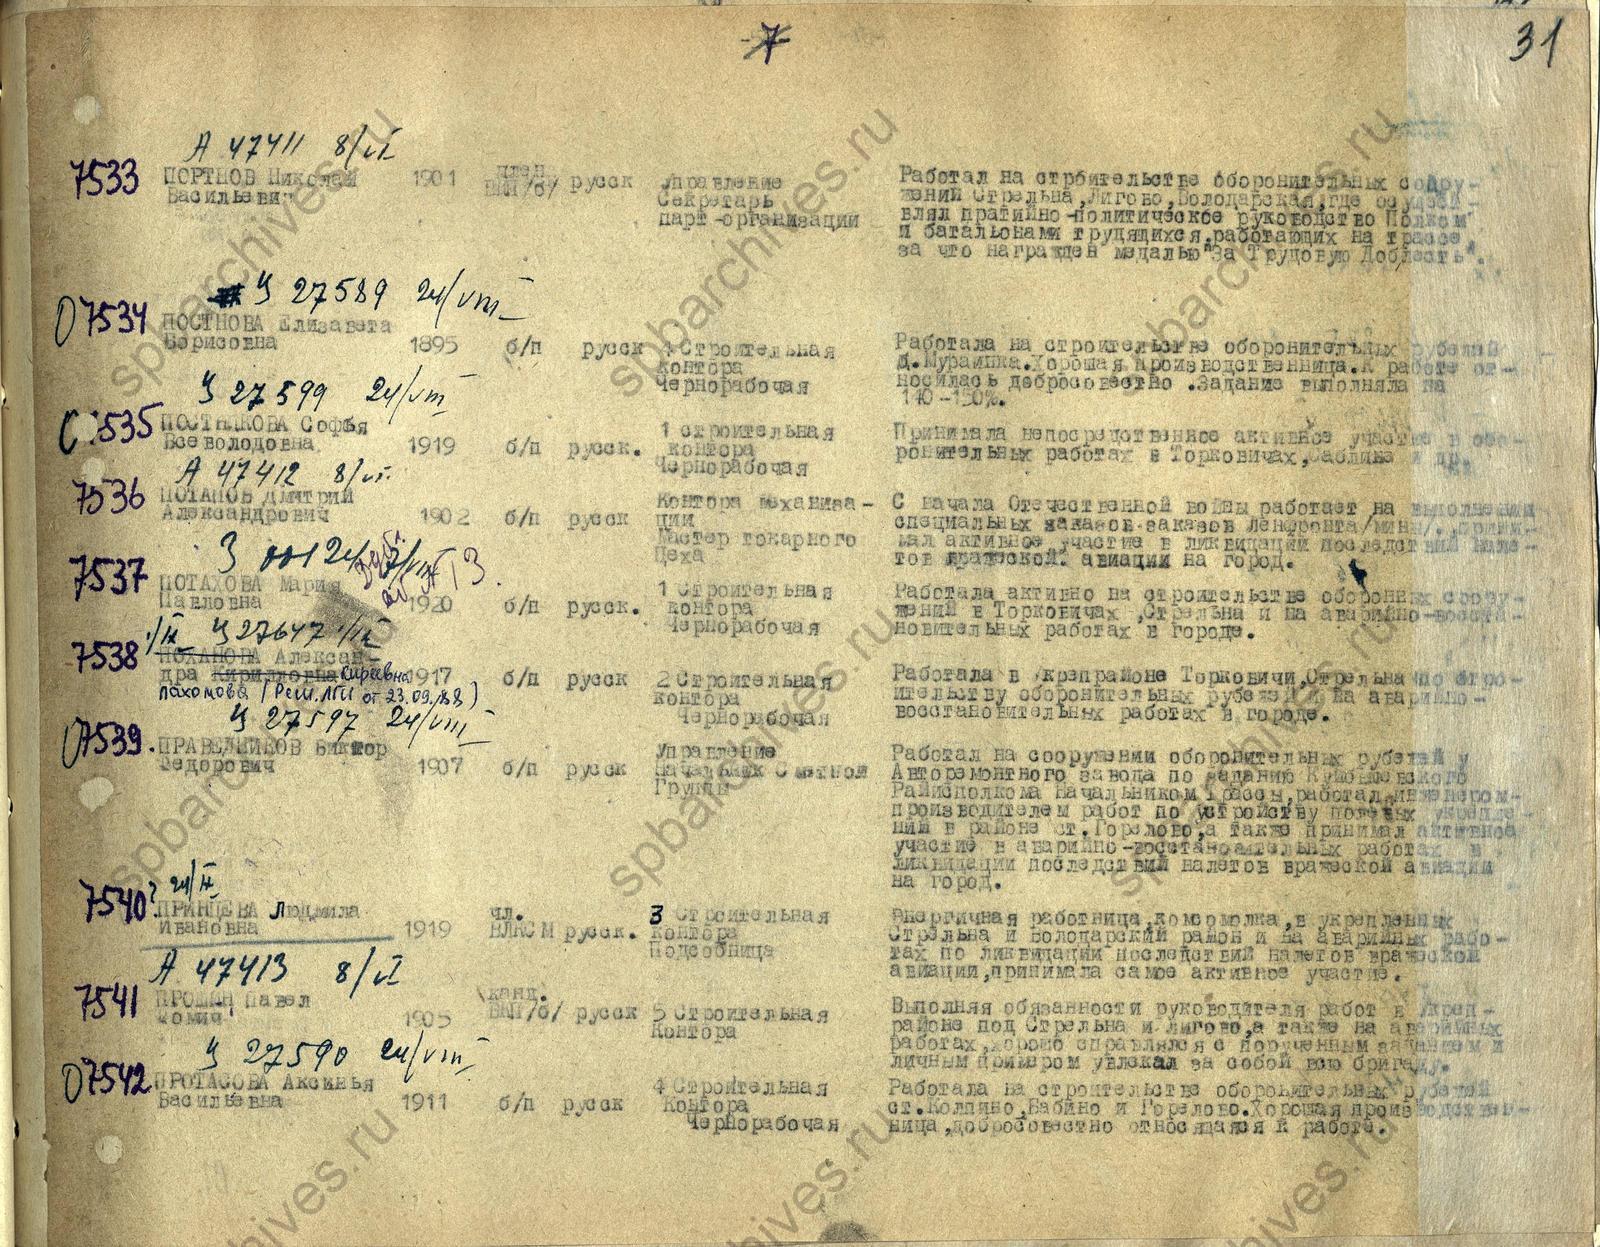 7
31
А 47411 8/VI
7533 ПОРТНОВ Николай 1901 член русск Управление Работал на строительстве оборонительных соору-
Васильевич ВКП/б/ Секретарь жений Стрельна, Лигово, Володарская, где осуществ-
парт-организации влял пратийно-политическое руководство Полком
и батальонами трудящихся, работающих на трассе,
за что награжден медалью "За Трудовую Доблесть".
Ц 27589 24/VIII
7534 ПОСТНОВА Елизавета
Борисовна 1895 б/п русск 4 Строительная Работала на строительстве оборонительных рубежей
контора д. Мурашка. Хорошая производственница. К работе от-
Чернорабочая носилась добросовестно. Задание выполняла на
140-150%.
Ц 27599 24/VIII
7535 ПОСТНИКОВА Софья 1 строительная Принимала непосредственное активное участие в обо-
Всеволодовна 1919 б/п русск. контора ронительных работах в Торковичах, Саблине и др.
Чернорабочая
А 47412 8/VI
7536 ПОТАПОВ Дмитрий Контора механиза- С начала Отечественной войны работает на выполнении
Александрович 1902 б/п русск ции специальных заказов-заказов Ленфронта/мины/, прини-
Мастер токарного мал активное участие в ликвидации последствий нале-
Цеха тов вражеской авиации на город.
7537 ПОТАХОВА Мария 1 Строительная Работала активно на строительстве оборонных соору-
Павловна 1920 б/п русск. контора жений в Торковичах, Стрельна и на аварийно-восста-
Чернорабочая новительных работах в городе.
Ц 27647 1/IX
7538 ПОХАНОВА Алексан-
дра Кирилловна Киреевна 1917 б/п русск 2 Строительная Работала в укрепрайоне Торковичи, Стрельна по стро-
Пахомова (Реш. ЛГИ от 23.09.88) контора ительству оборонительных рубежей и на аварийно-
Чернорабочая восстановительных работах в городе.
Ц 27597 24/VIII
7539. ПРАВЕДНИКОВ Виктор Управление Работал на сооружении оборонительных рубежей у
Федорович 1907 б/п русск Начальник Сметной Авторемонтного завода по заданию Куйбышевского
Группы Райисполкома Начальником Трассы, работал инженером-
производителем работ по устройству полевых укрепле-
ний в районе ст. Горелово, а также принимал активное
участие в аварийно-восстановительных работах и
ликвидации последствий налетов вражеской авиации
на город.
24/IX
7540? ПРИНЦЕВА Людмила чл. 3 Строительная Энергичная работница, комсомолка, в укреплениях
Ивановна 1919 ВЛКСМ русск. контора Стрельна и Володарский район и на аварийных рабо-
Подсобница тах по ликвидации последствий налетов вражеской
авиации, принимала самое активное участие.
А 47413 8/VI
7541 ПРОШИН Павел канд. Выполняя обязанности руководителя работ в укреп-
Фомич 1905 ВКП/б/ русск 5 Строительная районе под Стрельна и Лигово, а также на аварийных
Контора работах, хорошо справлялся с порученным заданием и
личным примером увлекал за собой всю бригаду.
Ц 27590 24/VIII
7542 ПРОТАСОВА Аксинья 4 Строительная Работала на строительстве оборонительных рубежей
Васильевна 1911 б/п русск Контора ст. Колпино, Бабино и Горелово. Хорошая производствен-
Чернорабочая ница, добросовестно относящаяся к работе.